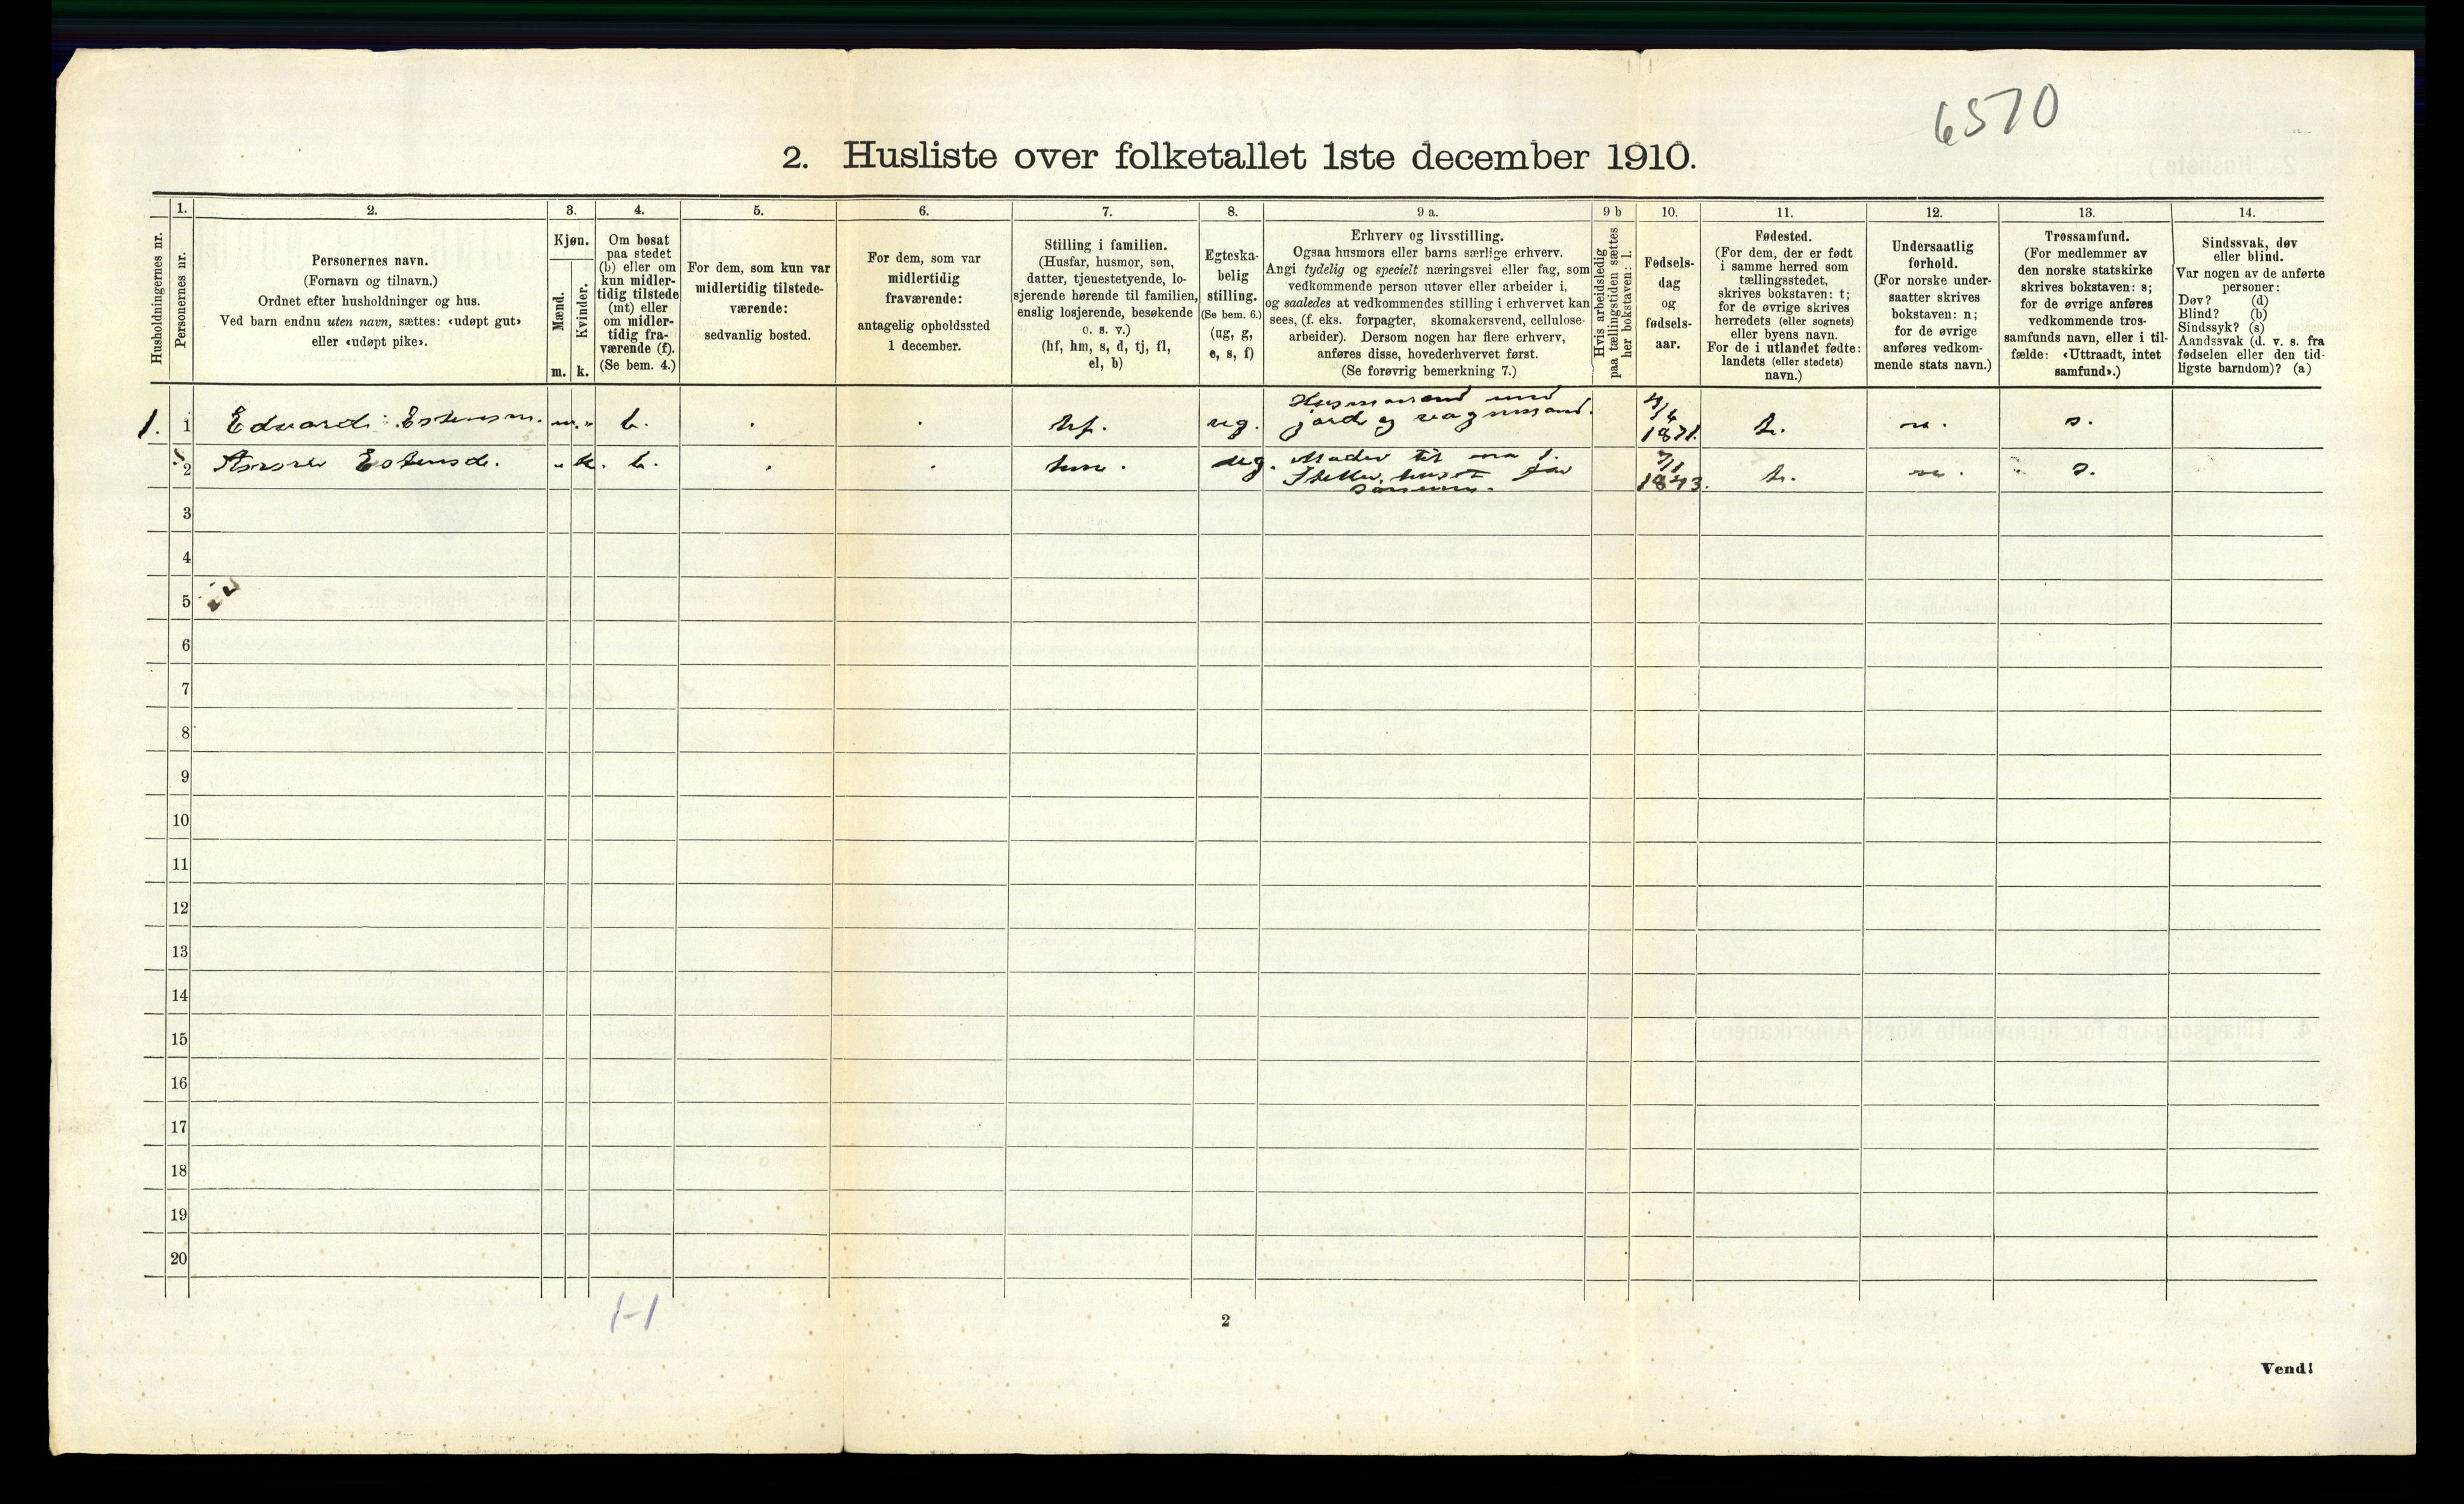 6570
2. Husliste over folketallet 1ste december 1910.
Husholdningernes nr.
1.
Personernes nr.
2.
Personernes navn.
(Fornavn og tilnavn.)
Ordnet efter husholdninger og hus.
Ved barn endnu uten navn, sættes: «udøpt gut»
eller «udøpt pike».
3.
Kjøn.
Mænd.
Kvinder.
m. k.
4.
Om bosat
paa stedet
(b) eller om
kun midler-
tidig tilstede
(mt) eller
om midler-
tidig fra-
værende (f).
(Se bem. 4.)
5.
For dem, som kun var
midlertidig tilstede-
værende:
sedvanlig bosted.
6.
For dem, som var
midlertidig
fraværende:
antagelig opholdssted
1 december.
7.
Stilling i familien.
(Husfar, husmor, søn,
datter, tjenestetyende, lo-
sjerende hørende til familien,
enslig losjerende, besøkende
o. s. v.)
(hf, hm, s, d, tj, fl,
el, b)
8.
Egteska-
belig
stilling.
(Se bem. 6.)
(ug, g,
e, s, f)
9 a.
Erhverv og livsstilling.
Ogsaa husmors eller barns særlige erhverv.
Angi tydelig og specielt næringsvei eller fag, som
vedkommende person utøver eller arbeider i,
og saaledes at vedkommendes stilling i erhvervet kan
sees, (f. eks. forpagter, skomakersvend, cellulose-
arbeider). Dersom nogen har flere erhverv,
anføres disse, hovederhvervet først.
(Se forøvrig bemerkning 7.)
9 b
Hvis arbeidsledig
paa tællingstiden sættes
her bokstaven: l.
10.
Fødsels-
dag
og
fødsels-
aar.
11.
Fødested.
(For dem, der er født
i samme herred som
tællingsstedet,
skrives bokstaven: t;
for de øvrige skrives
herredets (eller sognets)
eller byens navn.
For de i utlandet fødte:
landets (eller stedets)
navn.)
12.
Undersaatlig
forhold.
(For norske under-
saatter skrives
bokstaven: n;
for de øvrige
anføres vedkom-
mende stats navn.)
13.
Trossamfund.
(For medlemmer av
den norske statskirke
skrives bokstaven: s;
for de øvrige anføres
vedkommende tros-
samfunds navn, eller i til-
fælde: «Uttraadt, intet
samfund».)
14.
Sindssvak, døv
eller blind.
Var nogen av de anførte
personer:
Døv? (d)
Blind? (b)
Sindssyk? (s)
Aandssvak (d. v. s. fra
fødselen eller den tid-
ligste barndom)? (a)
1. 1 Edvard Estensen. m. " b. hf. ug. Husmand med
jord og 1871. t. n. s.
2 " k. b. Moder til no 1.
Steller huset for
sønnen. 7/1
1843. t. n. s.
3
4
5
6
7
8
9
10
11
12
13
14
15
16
17
18
19
20
1-1
2
Vend!